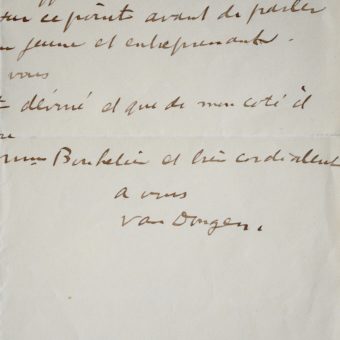 sur ce point avant de parler
jeune et entreprenant.
vous
désiré et que de mon coté il
re
Bouhelier et bien cordialement
a vous
Van Dongen.